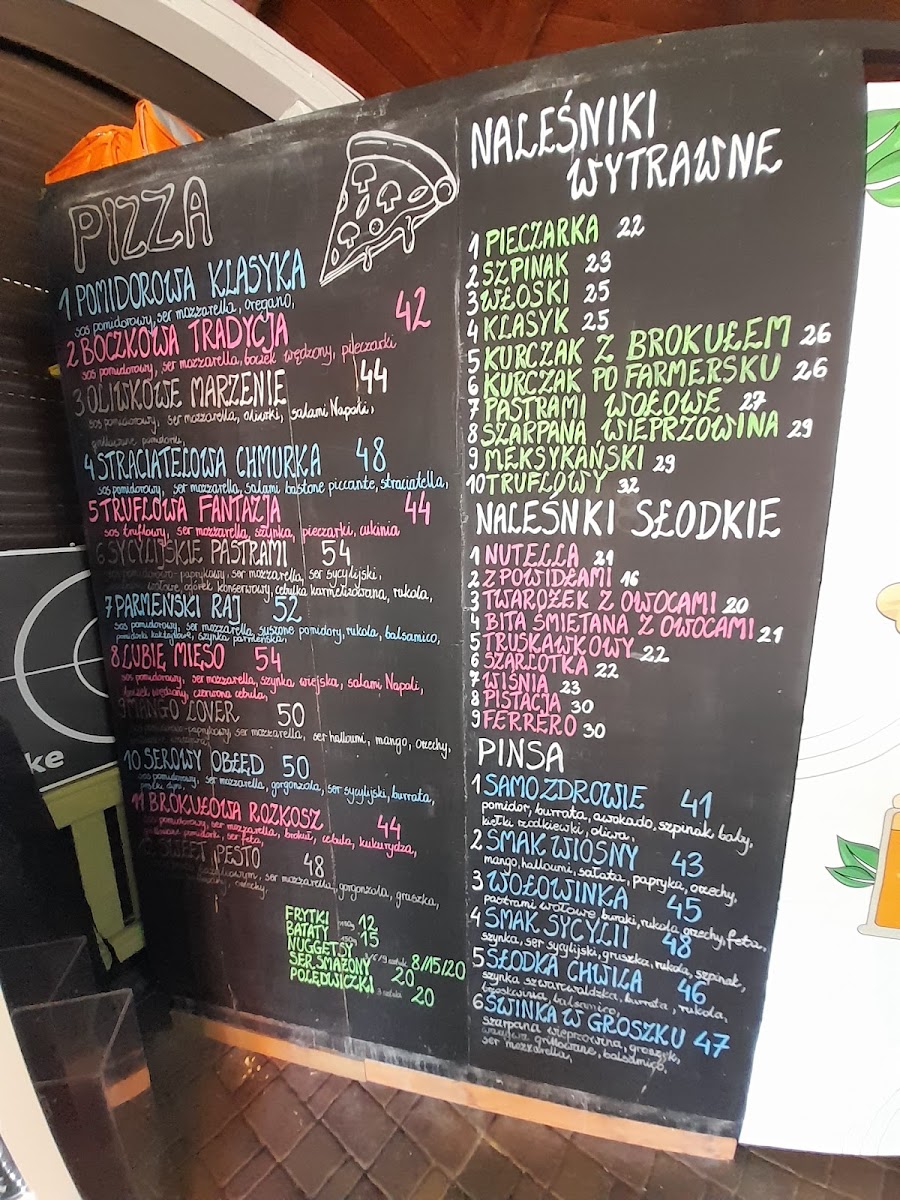 PIZZA
1 POMIDOROWA KLASYKA
sos pomidorowy, ser mozzarella, oregano,
42
2 BOCZKOWA TRADYCJA
sos pomidorowy, ser mozzarella, boczek wędzony, pieczarki
3 OLIWKOWE MARZENIE 44
sos pomidorowy, ser mozzarella, oliwki, salami Napoli,
grillowane pomidorki,
4 STRACIATELOWA CHMURKA 48
sos pomidorowy, ser mozzarella, salami bastone piccante, straciatella,
5 TRUFLOWA FANTAZJA 44
sos truflowy, ser mozzarella, szynka, pieczarki, cukinia
6 SYCYLIJSKIE PASTRAMI 54
paprykowy, ser mozzarella, ser sycylijski,
ogórek konserwowy, cebulka karmelizowana, rukola,
7 PARMEŃSKI RAJ 52
sos pomidorowy, ser mozzarella, suszone pomidory, rukola, balsamico,
pomidorki koktajlowe, szynka parmeńska,
8 LUBIĘ MIĘSO 54
sos pomidorowy, ser mozzarella, szynka wiejska, salami Napoli,
boczek wędzony, czerwona cebula,
9 MANGO LOVER 50
paprykowy, ser mozzarella, ser halloumi, mango, orzechy,
10 SEROWY OBŁĘD 50
sos pomidorowy, ser mozzarella, gorgonzola, ser sycylijski, burrata,
pestki dyni,
11 BROKUŁOWA ROZKOSZ 44
sos pomidorowy, ser mozzarella, brokuł, cebula, kukurydza,
grillowane pomidorki, ser feta,
SWEET PESTO 48
ser mozzarella, gorgonzola, gruszka,
orzechy,
FRYTKI 12
BATATY 15
NUGGETSY 8/15/20
SER SMAŻONY 20
POLĘDWICZKI 20
NALEŚNIKI
WYTRAWNE
1 PIECZARKA 22
2 SZPINAK 23
3 WŁOSKI 25
4 KLASYK 25
5 KURCZAK Z BROKUŁEM 26
6 KURCZAK PO FARMERSKU 26
7 PASTRAMI WOŁOWE 27
8 SZARPANA WIEPRZOWINA 29
9 MEKSYKAŃSKI 29
10 TRUFLOWY 32
NALEŚNKI SŁODKIE
1 NUTELLA 21
2 Z POWIDŁAMI 16
3 TWAROŻEK Z OWOCAMI 20
4 BITA ŚMIETANA Z OWOCAMI 21
5 TRUSKAWKOWY 22
6 SZARLOTKA 22
7 WIŚNIA 23
8 PISTACJA 30
9 FERRERO 30
PINSA
1 SAMO ZDROWIE 41
pomidor, burrata, awokado, szpinak baby,
kiełki rzodkiewki, oliwa,
2 SMAK WIOSNY 43
mango, halloumi, sałata, papryka, orzechy,
3 WOŁOWINKA 45
pastrami wołowe, buraki, rukola, orzechy, feta,
4 SMAK SYCYLII 48
szynka, ser sycylijski, gruszka, rukola, szpinak,
5 SŁODKA CHWILA 46
szynka szwarcwaldzka, burrata, rukola,
brzoskwinia, balsamico,
6 ŚWINKA W GROSZKU 47
szarpana wieprzowina, groszek,
grillowane, balsamico,
ser mozzarella,
ke